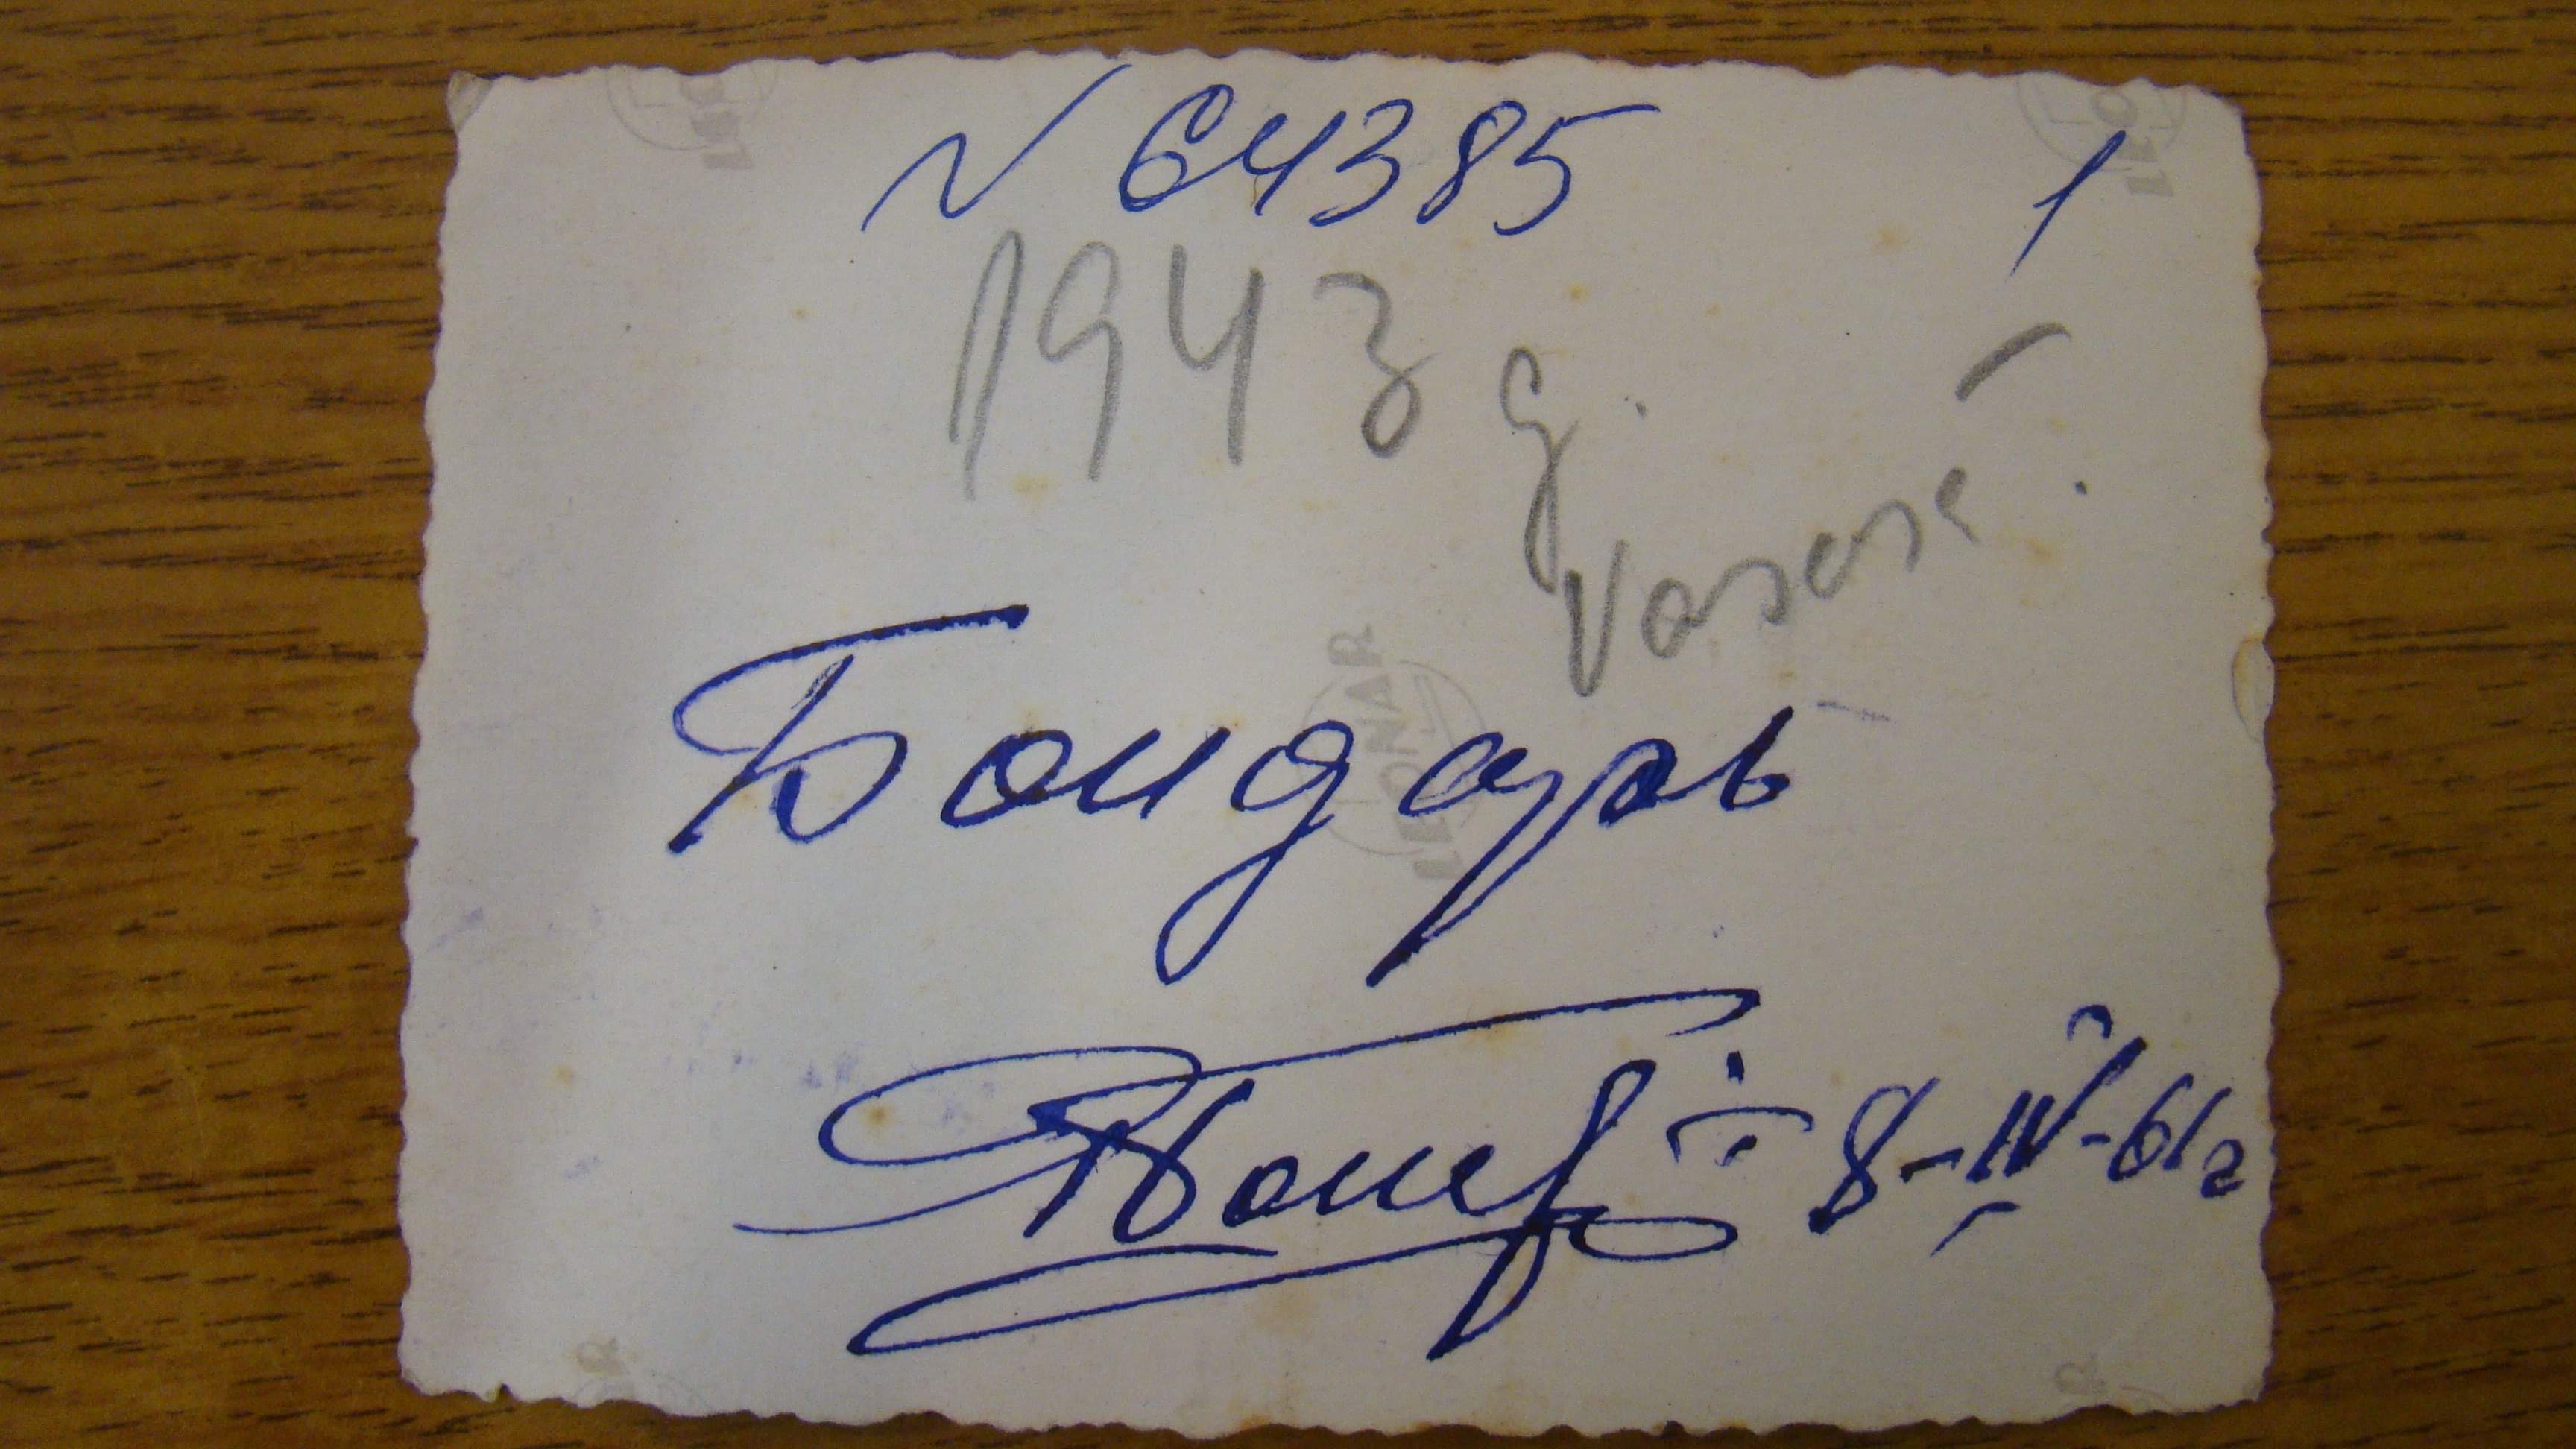 N 64385 1
1943 g.
Vasarā.
LEONAR
Бондарь
8-IV-61г